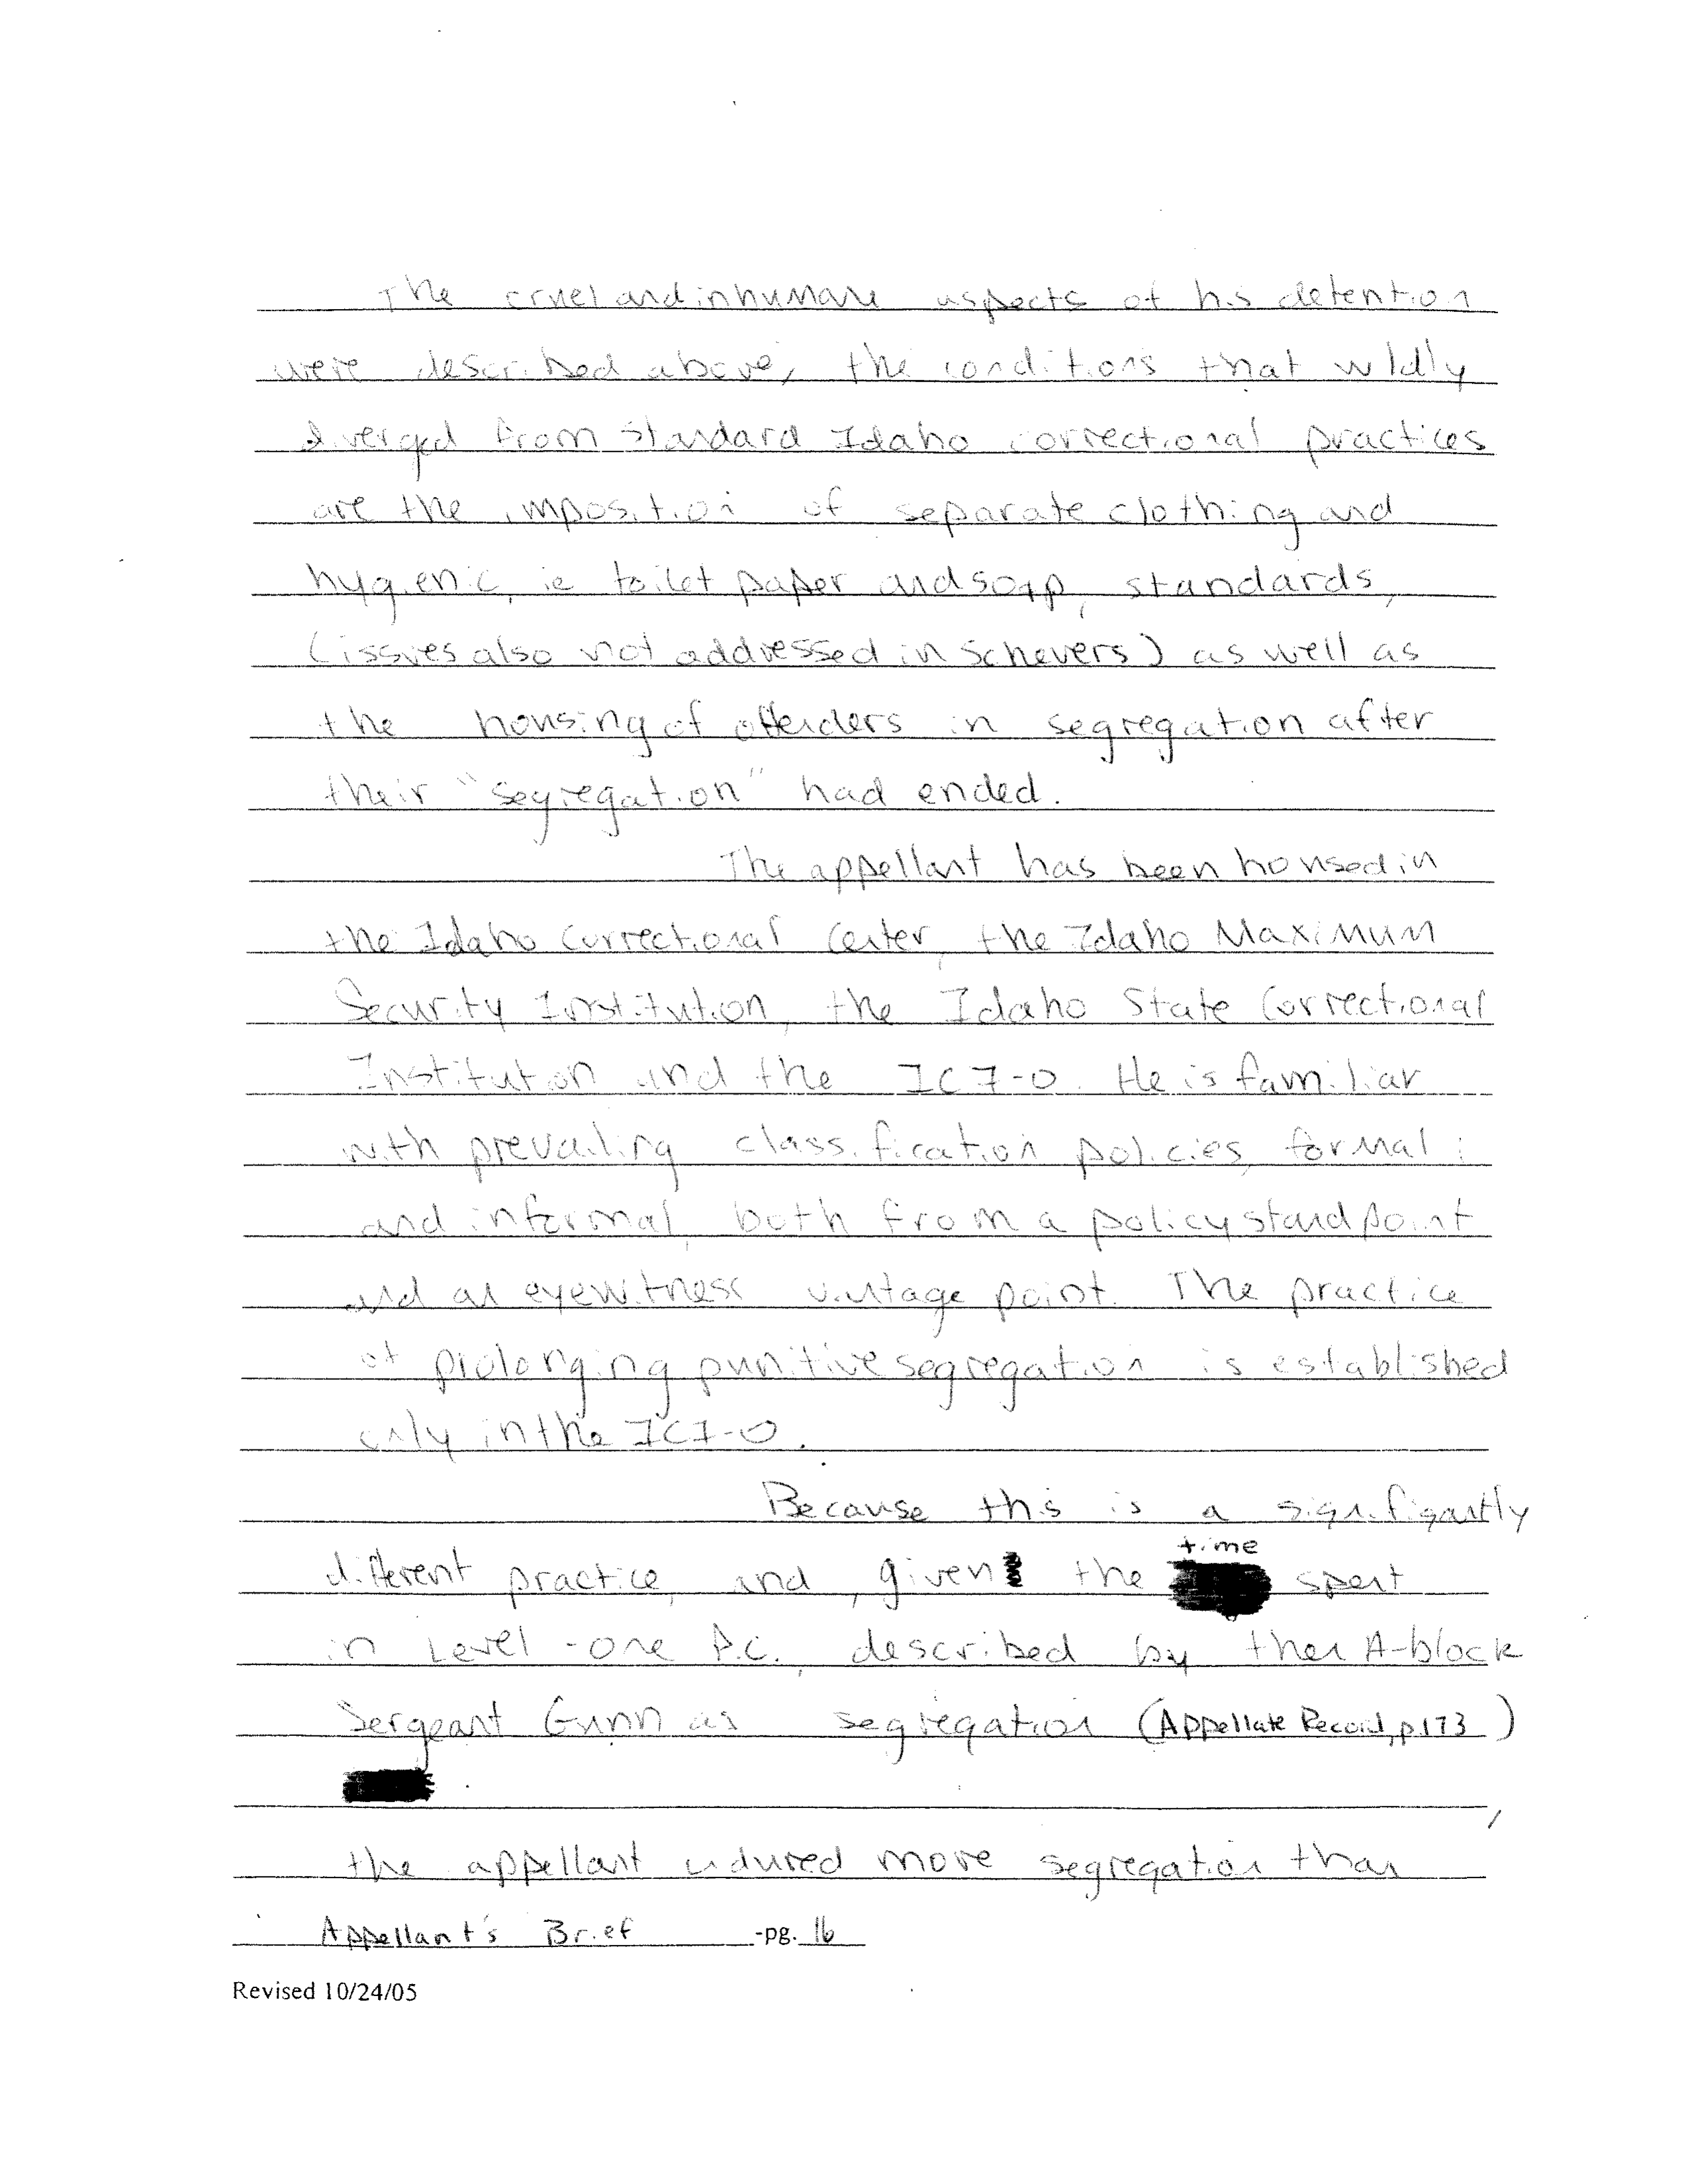 The cruel and inhumane aspects of his detention
were described above, the conditions that wildly
diverged from standard Idaho correctional practices
are the imposition of separate clothing and
hygienic, ie toilet paper and soap, standards,
(issues also not addressed in Schevers) as well as
the housing of offenders in segregation after
their "segregation" had ended.
The appellant has been housed in
the Idaho Correctional Center, the Idaho Maximum
Security Institution, the Idaho State Correctional
Institution and the ICI-O. He is familiar
with prevailing classification policies, formal
and informal, both from a policy standpoint
and an eyewitness vantage point. The practice
of prolonging punitive segregation is established
only in the ICI-O.
Because this is a signifigantly
time
different practice, and, given the spent
in Level-one P.C., described by then A-block
Sergeant Gunn as segregation (Appellate Record, p.173)
,
the appellant endured more segregation than
Appellant's Brief -pg. 16
Revised 10/24/05